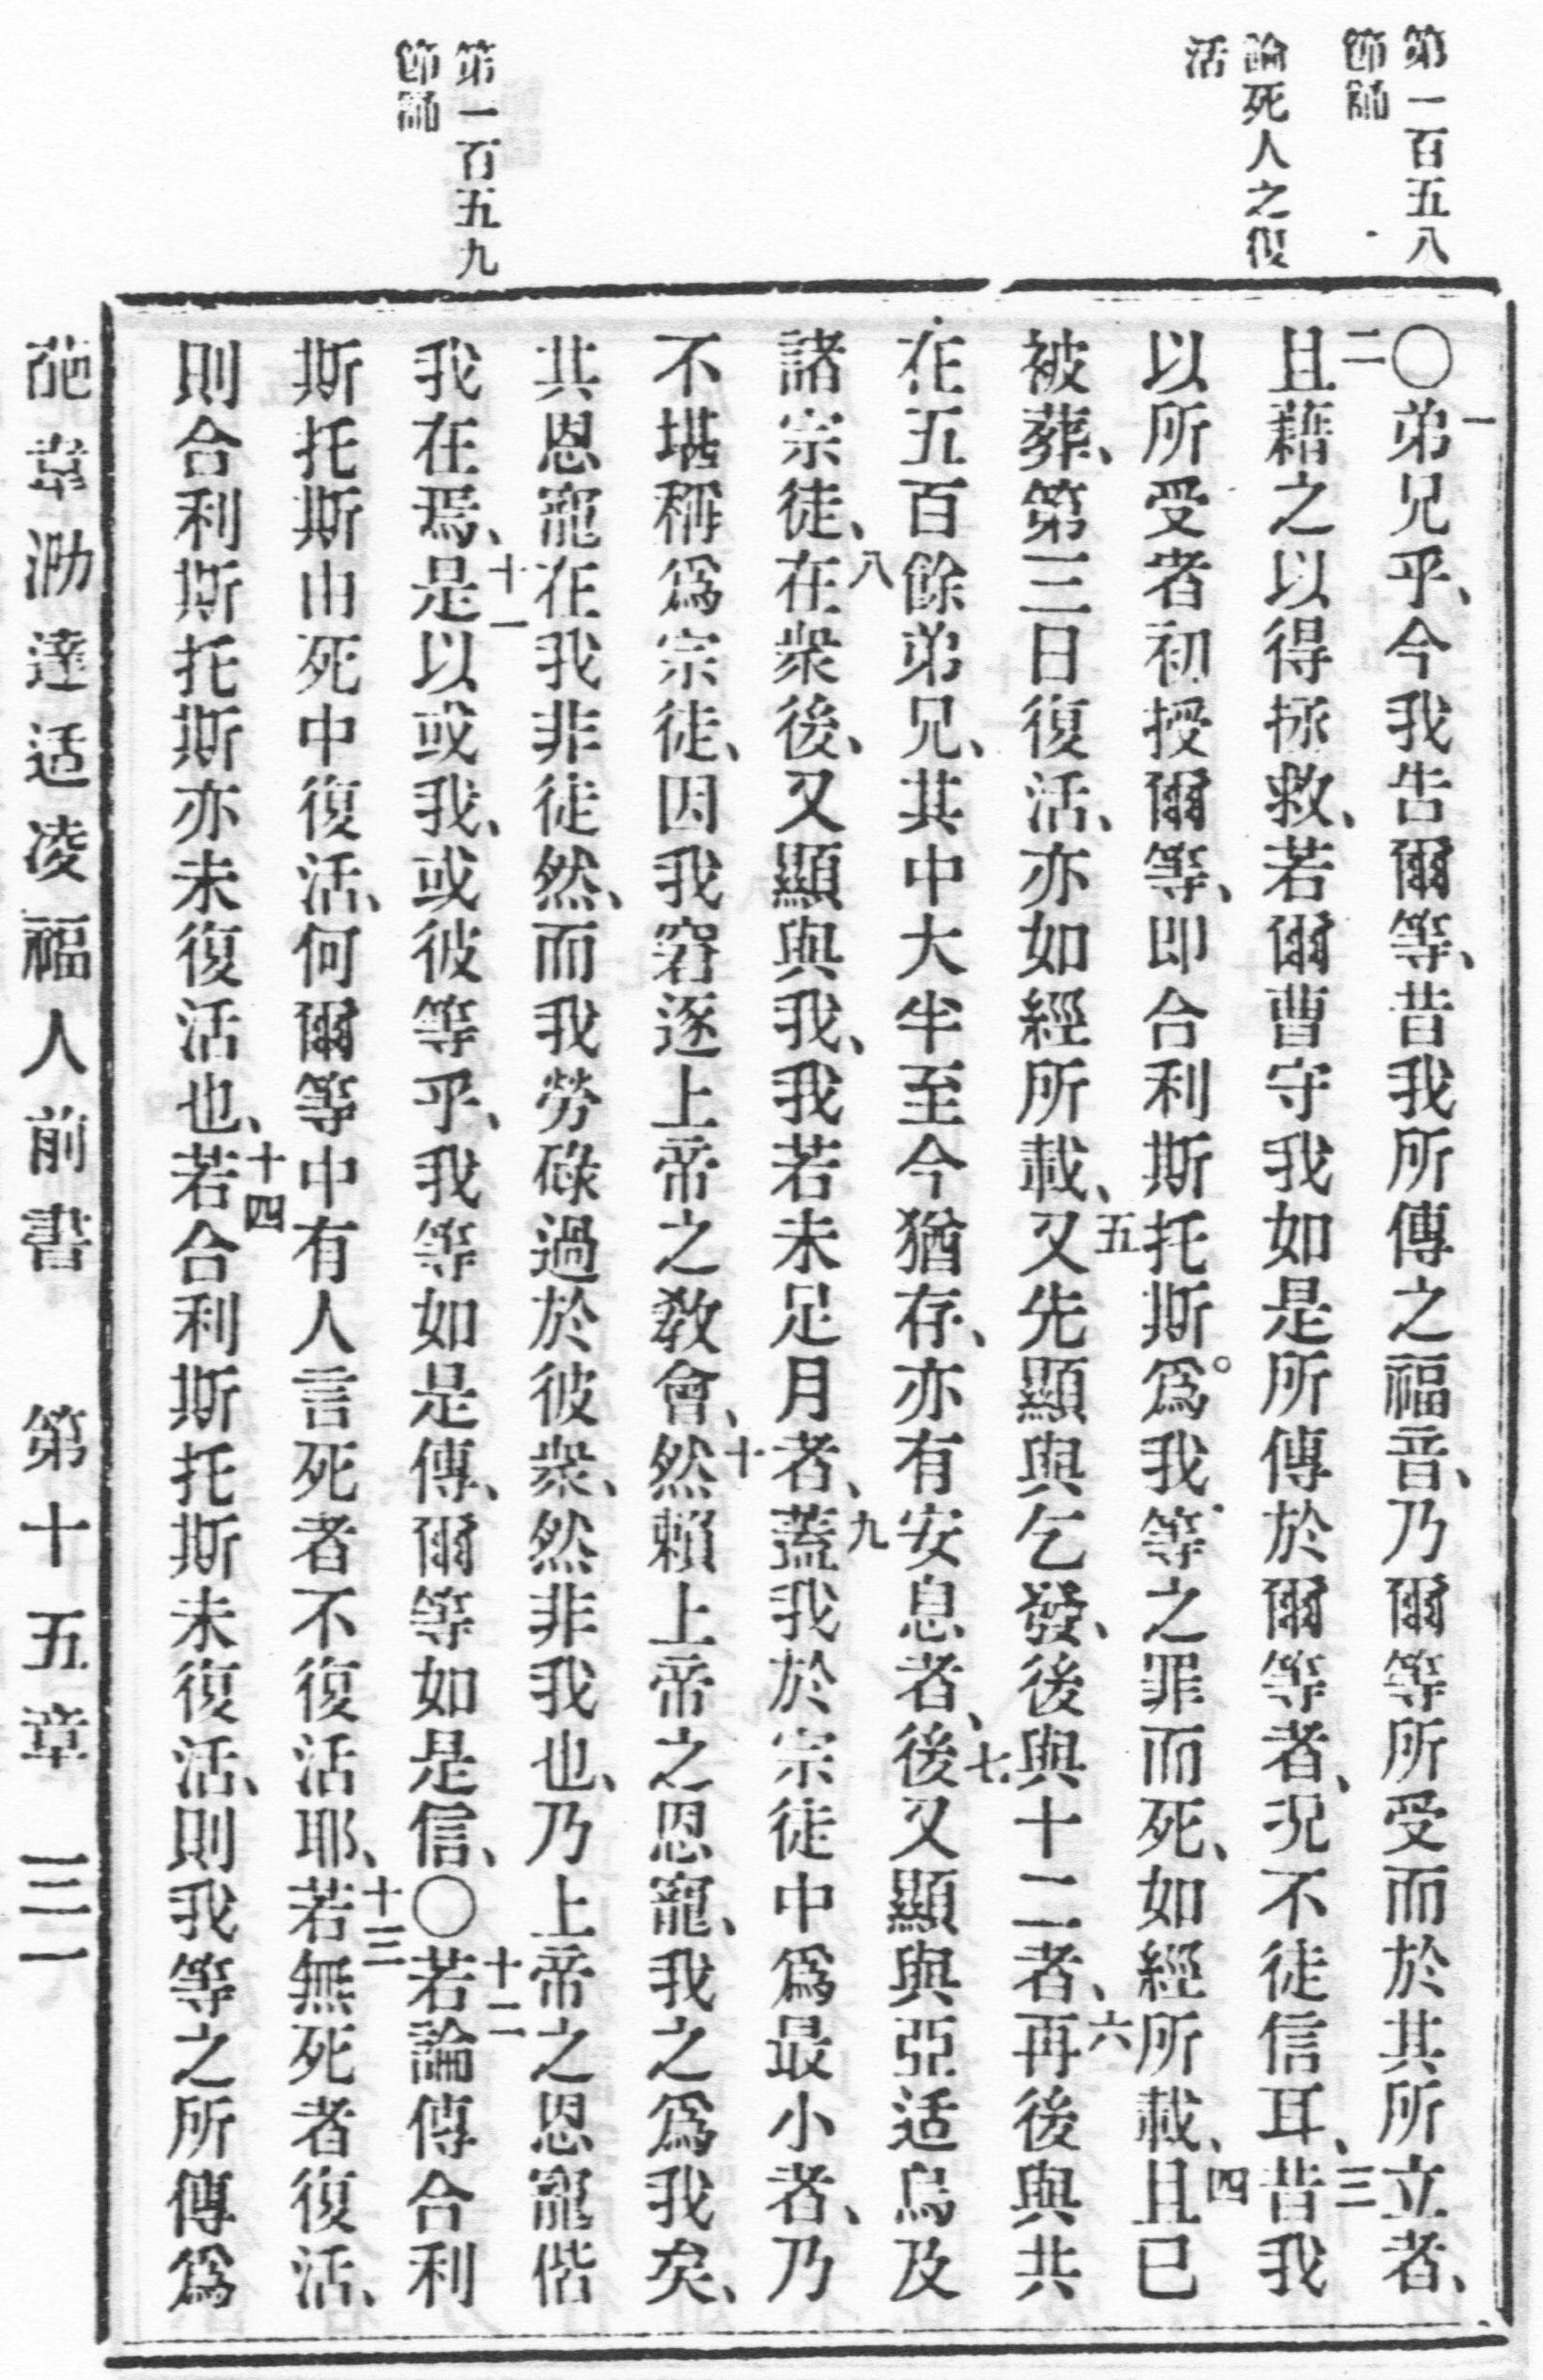 第一百五八
節節
論死人之復
活
第一百五九
節節
○一弟兄乎、今我告爾等、昔我所傳之福音、乃爾等所受而於其所立者、
二且藉之以得拯救、若爾曹守我如是所傳於爾等者、况不徒信耳、三昔我
以所受者初授爾等、即合利斯托斯。爲我等之罪而死、如經所載、四且已
被葬、第三日復活、亦如經所載、五又先顯與乞發、後與十二者、六再後與共
在五百餘弟兄、其中大半至今猶存、亦有安息者、七後又顯與亞适烏及
諸宗徒、八在衆後、又顯與我、我若未足月者、九蓋我於宗徒中爲最小者、乃
不堪稱爲宗徒、因我窘逐上帝之教會、十然賴上帝之恩寵、我之爲我矣、
其恩寵在我非徒然、而我勞碌過於彼衆、然非我也、乃上帝之恩寵偕
我在焉、十一是以或我、或彼等乎、我等如是傳、爾等如是信、○十二若論傳合利
斯托斯由死中復活、何爾等中有人言死者不復活耶、十三若無死者復活、
則合利斯托斯亦未復活也、十四若合利斯托斯未復活、則我等之所傳爲
葩韋泐達适凌福人前書　第十五章　三一